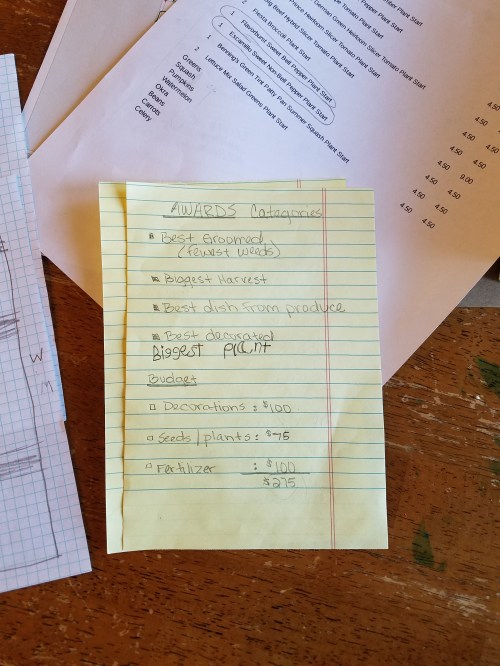 Pepper Plant Start
Tomato Plant Start
German Green Heirloom Slicer Tomato Plant Start
Prince Heirloom Slicer Tomato Plant Start
Big Beef Hybrid Slicer Tomato Plant Start
2 Fiesta Broccoli Plant Start
1 Flavorburst Sweet Bell Pepper Plant Start
1 Escamillo Sweet Non-Bell Pepper Plant Start
1 Benning's Green Tint Patty Pan Summer Squash Plant Start
2 Lettuce Mix Salad Greens Plant Start
Greens
Squash
Pumpkins
Watermelon
Okra
Beans
Carrots
Celery
4.50
4.50
4.50
4.50
4.50
4.50
9.00
4.50
4.50
4.50
4.50
AWARDS Categories
Best Groomed
(fewest weeds)
Biggest Harvest
Best dish from produce
Best decorated
Biggest plant
Budget
Decorations : $100
Seeds/plants : $75
Fertilizer : $100
$275
W
M